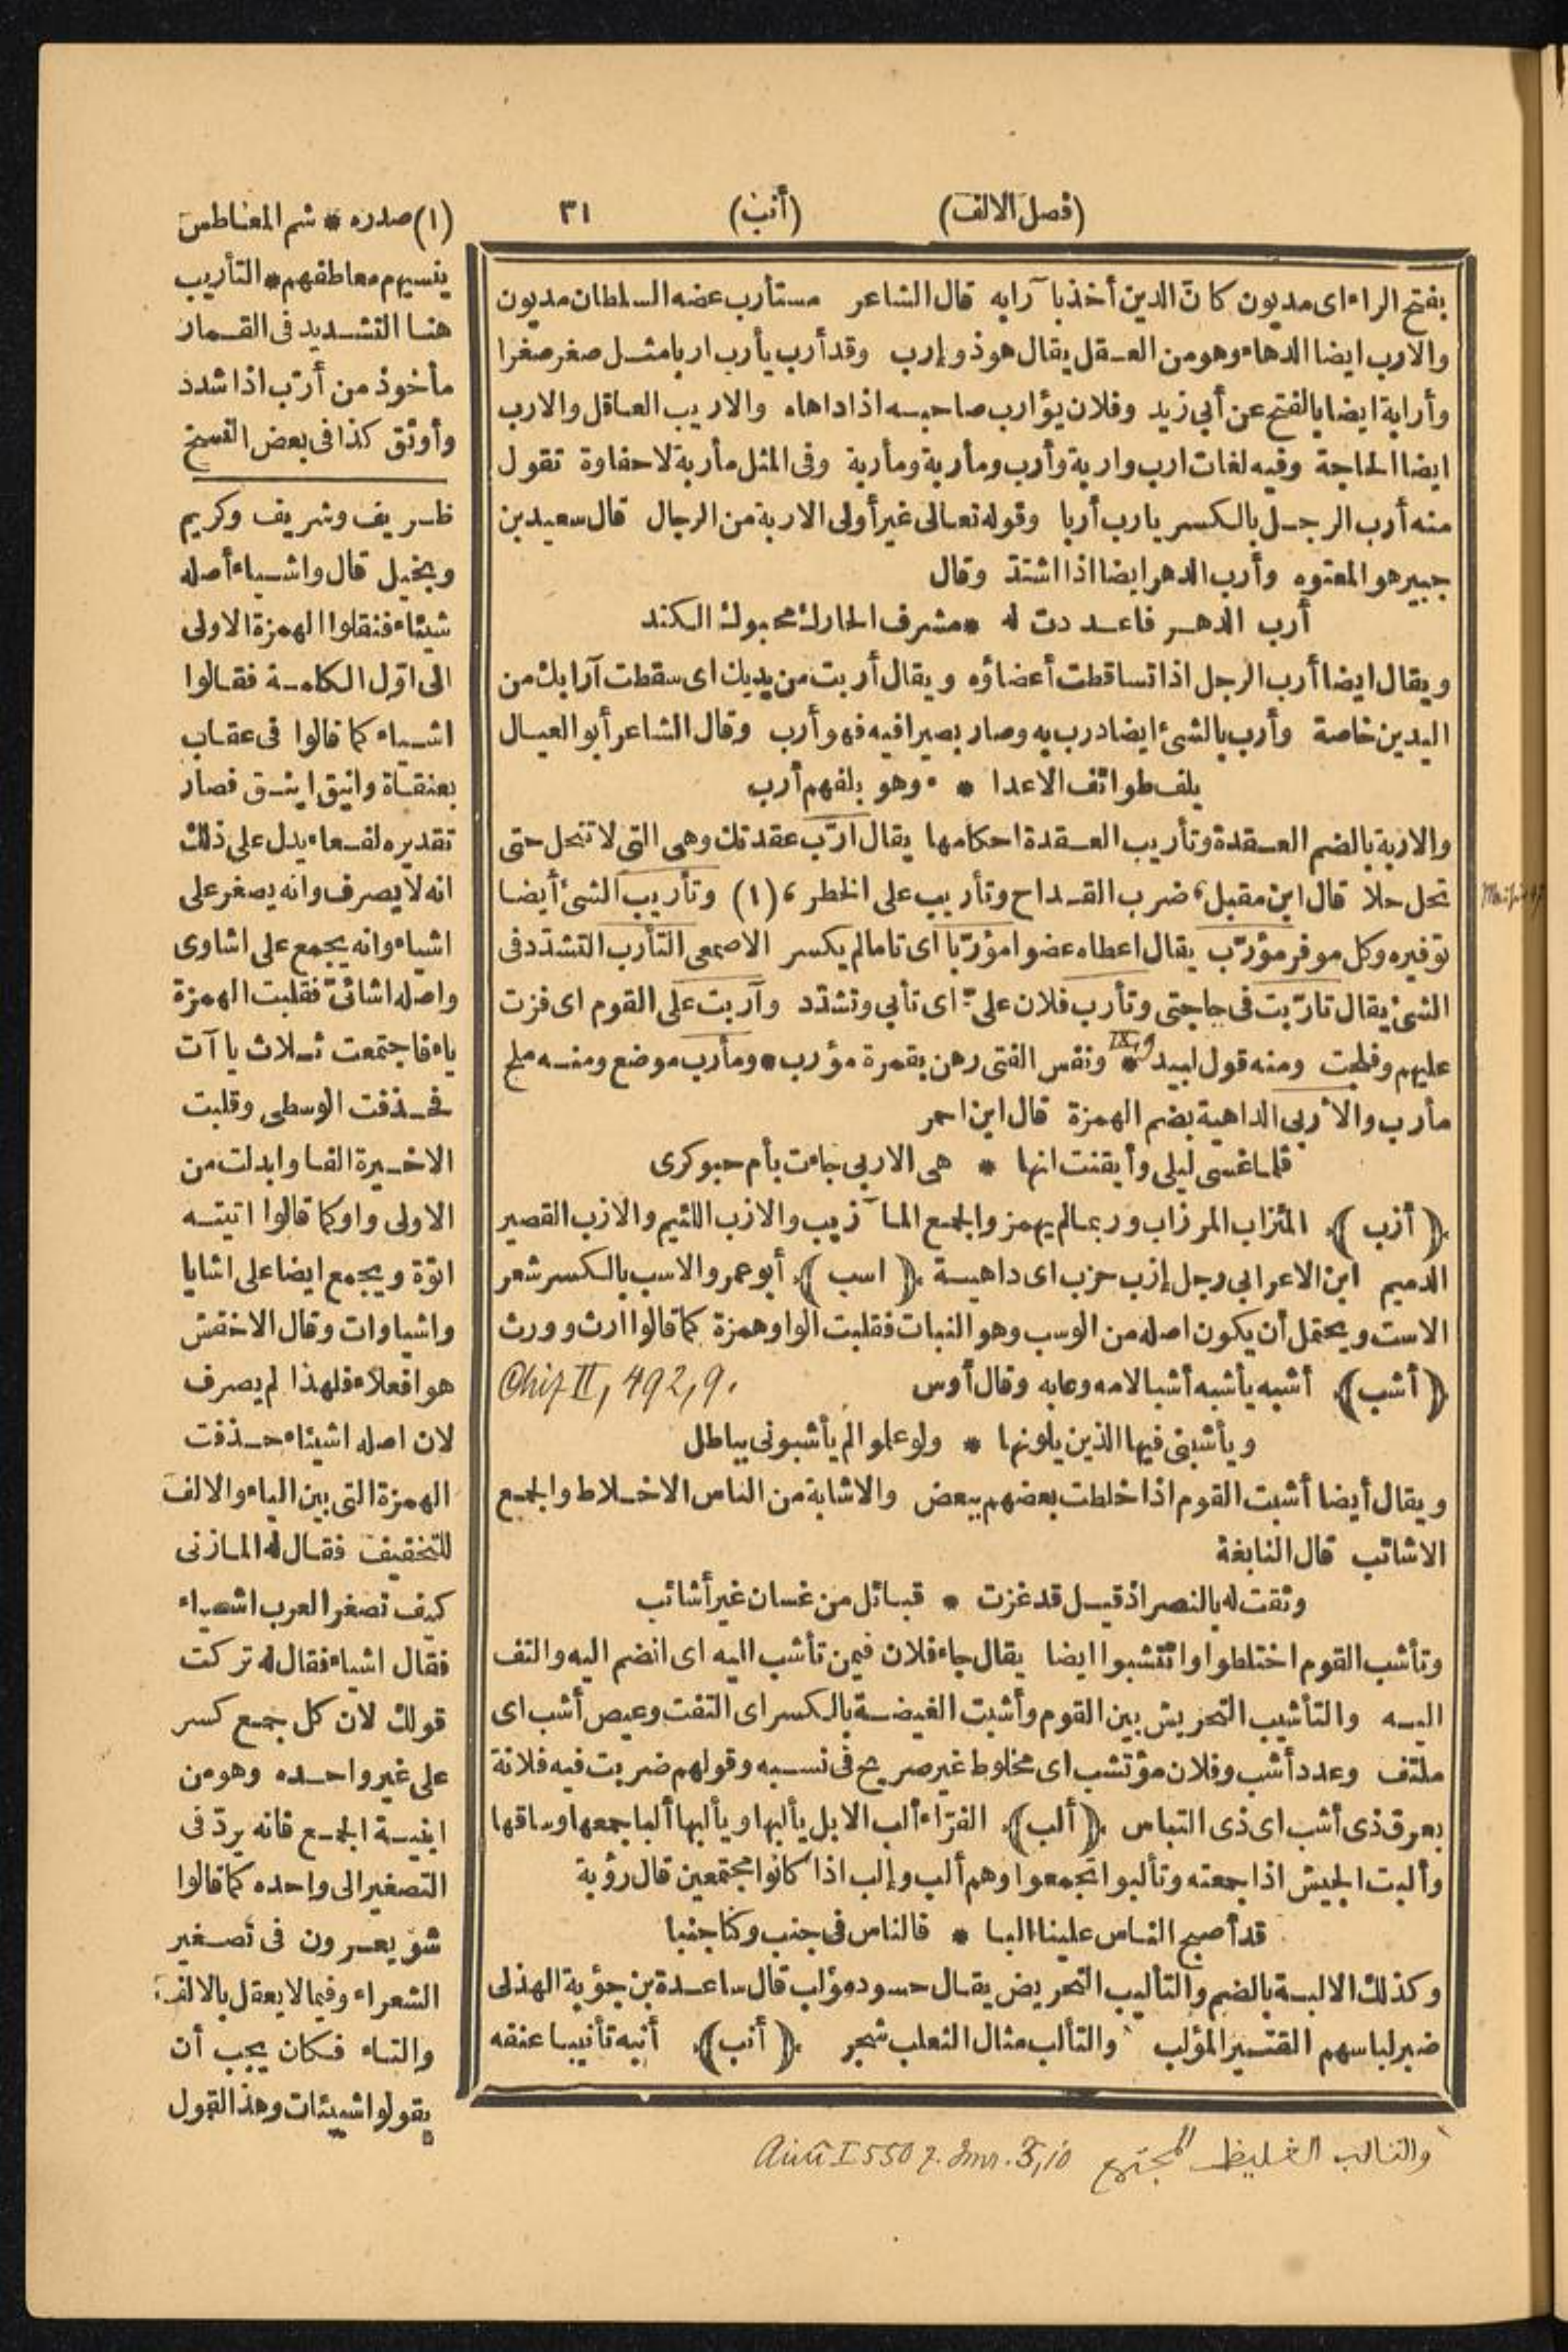 (فصل الالف)
(أنب)
٣١
بفتح الراء اى مديون كانّ الدين أخذ بآرابه قال الشاعر مستأرب عضه السلطان مديون
والارب ايضا الدهاء وهو من العقل يقال هو ذو إرب وقد أرب يأرب اربا مثل صغر صغرا
وأرابة ايضا بالفتح عن أبي زيد وفلان يؤارب صاحبه اذا داهاه والاريب العاقل والارب
ايضا الحاجة وفيه لغات ارب واربة وأرب ومأربة ومأربة وفى المثل مأربة لا حفاوة تقول
منه أرب الرجل بالكسر يارب أربا وقوله تعالى غير أولى الاربة من الرجال قال سعيد بن
جبير هو المعتوه وأرب الدهر ايضا اذا اشتدّ وقال
أرب الدهر فاعددت له * مشرف الحارك محبوك الكتد
ويقال ايضا أرب الرجل اذا تساقطت أعضاؤه ويقال أربت من يديك اى سقطت آرابك من
اليدين خاصة وأرب بالشئ ايضا درب به وصار بصيرا فيه فهو أرب وقال الشاعر أبو العيال
يلف طوائف الاعدا * ء وهو بلفهم أرب
والاربة بالضم العقدة وتأريب العقدة احكامها يقال ارّب عقدتك وهى التى لا تنحل حتى
تحل حلا قال ابن مقبل ، ضرب القداح وتأريب على الخطر ، (١) وتأريب الشئ أيضا
توفيره وكل موفر مؤرّب يقال اعطاه عضوا مؤرّبا اى تاما لم يكسر الاصمعى التأرب التشدّد فى
الشئ يقال تارّبت فى حاجتى وتأرب فلان علىّ اى تأبي وتشدّد وآربت على القوم اى فزت
عليهم وفلجت ومنه قول لبيد * ونفس الفتى رهن بقمرة مؤرب * ومأرب موضع ومنه ملح
مأرب والأربى الداهية بضم الهمزة قال ابن احمر
فلما غسى ليلى وأيقنت انها * هى الاربى جاءت بأم حبوكرى
﴿أزب﴾ المئزاب المرزاب وربما لم يهمز والجمع المآزيب والازب اللئيم والازب القصير
الدميم ابن الاعرابي رجل إزب حزب اى داهية ﴿اسب﴾ أبو عمرو الاسب بالكسر شعر
الاست ويحتمل أن يكون اصله من الوسب وهو النبات فقلبت الواو همزة كما قالوا ارث وورث
﴿أشب﴾ أشبه يأشبه أشبا لامه وعابه وقال أوس
II, 492, 9.
ويأشبنى فيها الذين يلونها * ولو علموا لم يأشبونى بباطل
ويقال أيضا أشبت القوم اذا خلطت بعضهم ببعض والاشابة من الناس الاخلاط والجمع
الاشائب قال النابغة
وثقت له بالنصر اذ قيل قد غزت * قبائل من غسان غير أشائب
وتأشب القوم اختلطوا وائتشبوا ايضا يقال جاء فلان فيمن تأشب اليه اى انضم اليه والتف
اليه والتأشيب التحريش بين القوم وأشبت الغيضة بالكسر اى التفت وعيص أشب اى
ملتف وعدد أشب وفلان مؤتشب اى مخلوط غير صريح فى نسبه وقولهم ضربت فيه فلانة
بعرق ذى أشب اى ذى التباس ﴿ألب﴾ الفرّاء ألب الابل يألبها ويألبها ألبا جمعها وساقها
وألبت الجيش اذا جمعته وتألبوا تجمعوا وهم ألب وإلب اذا كانوا مجتمعين قال رؤبة
قد أصبح الناس علينا البا * فالناس فى جنب وكنّا جنبا
وكذلك الالبة بالضم والتأليب التحريض يقال حسود مؤلب قال ساعدة بن جؤية الهذلى
ضبر لباسهم القتير المؤلب والتألب مثال الثعلب شجر ﴿أنب﴾ أنبه تأنيبا عنفه
والتالب الغليظ المجتمع
(١) صدره * شم المخاطس
ينسيهم معاطفهم * التأريب
هنا التشديد فى القمار
مأخوذ من أرّب اذا شدد
وأوثق كذا فى بعض النسخ
ظريف وشريف وكريم
وبخيل قال واشياء أصله
شيئاء فنقلوا الهمزة الاولى
الى اوّل الكلمة فقالوا
اشياء كما قالوا فى عقاب
بعنقاة وانيق اينق فصار
تقديره لفعاء يدل على ذلك
انه لا يصرف وانه يصغر على
اشياء وانه يجمع على اشاوى
واصله اشائىّ فقلبت الهمزة
ياء فاجتمعت ثلاث ياآت
فحذفت الوسطى وقلبت
الاخيرة الفا وابدلت من
الاولى واو كما قالوا اتيته
اتوة ويجمع ايضا على اشايا
واشياوات وقال الاخفش
هو افعلاء فلهذا لم يصرف
لان اصله اشيئاء حذفت
الهمزة التى بين الياء والالف
للتخفيف فقال له المازنى
كيف تصغر العرب اشياء
فقال اشياء فقال له تركت
قولك لان كل جمع كسر
على غير واحده وهو من
ابنية الجمع فانه يردّ فى
التصغير الى واحده كما قالوا
شويعرون فى تصغير
الشعراء وفيما لا يعقل بالالف
والتاء فكان يجب أن
يقولوا شييئات وهذا القول